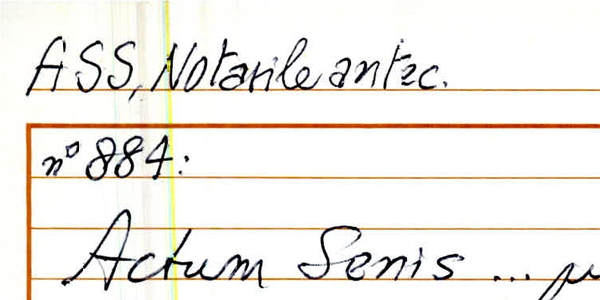 ASS, Notarile antec.
n° 884:
Actum Senis ...